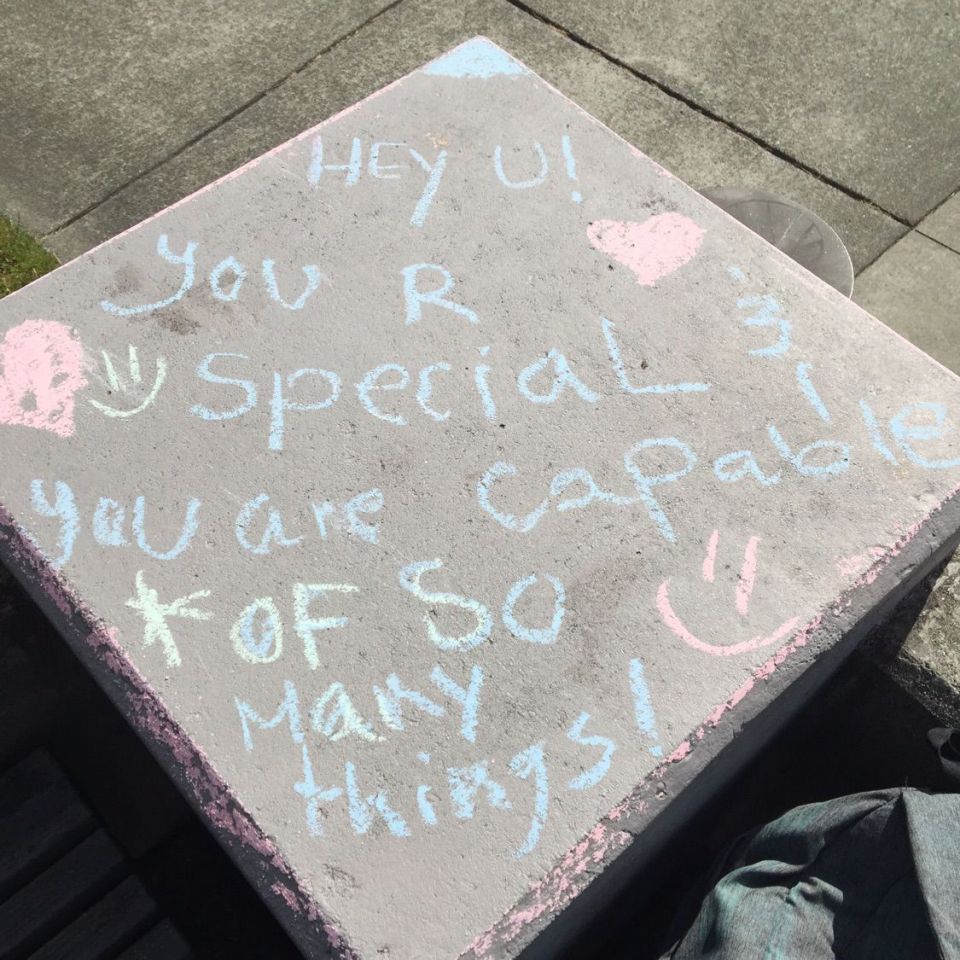 HEY U!
You R
SpeciaL
you are capable
OF SO
Many
things!